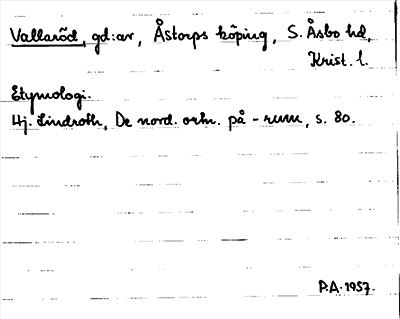 Vallaröd, gd:ar, Åstorps köping, S. Åsbo hd,
Krist. l.
Etymologi.
Hj. Lindroth, De nord. ortn. på - rum, s. 80.
P.A. 1957.